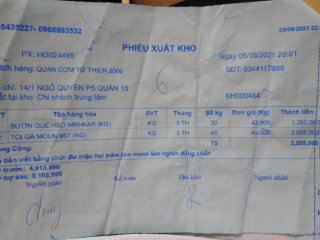 5435227- 0966993532
05/08/2021 22
PHIẾU XUẤT KHO
PX: HD024495
Ngày 05/08/2021 20:01
hách hàng: QUÁN CƠM TỪ THIỆN 2000
SĐT: 0344117898
chỉ: 14/1 NGÔ QUYỀN P5 QUẬN 10
KH000464
ất tại kho: Chi nhánh trung tâm
Tên hàng hóa ĐVT Thùng Số kg Đơn giá (Kg) Thành tiền
SƯỜN QUE HEO MIR-KAR (KG) KG 3 TH 30 42,000 1,260,000
TỎI GÀ MOUN 667 (KG) KG 3 TH 45 45,000 2,025,000
Tổng Cộng: 75 3,285,000
tiền viết bằng chữ: Ba triệu hai trăm tám mươi lăm nghìn đồng chẵn
trước: 4,913,990
nợ sau: 8,198,990
Người giao Kế toán Thủ kho Người nhận